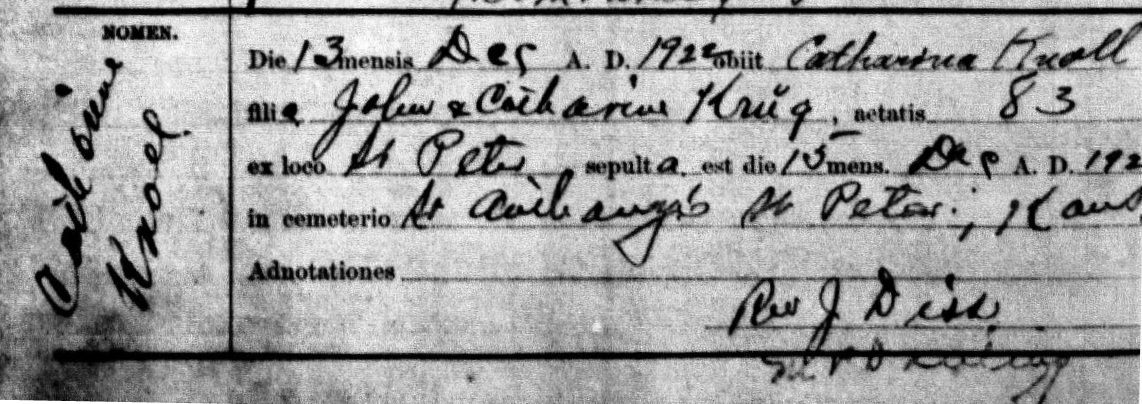 NOMEN.
Catharine
Knoel.
Die 13 mensis Dec A. D. 1922 obiit Catharina Knoll
filia John & Catharine Krug, aetatis 83
ex loco St Peter sepulta est die 15 mens. Dec A. D. 192
in cemeterio St Peter, Kans
Adnotationes
Rev J Diss.